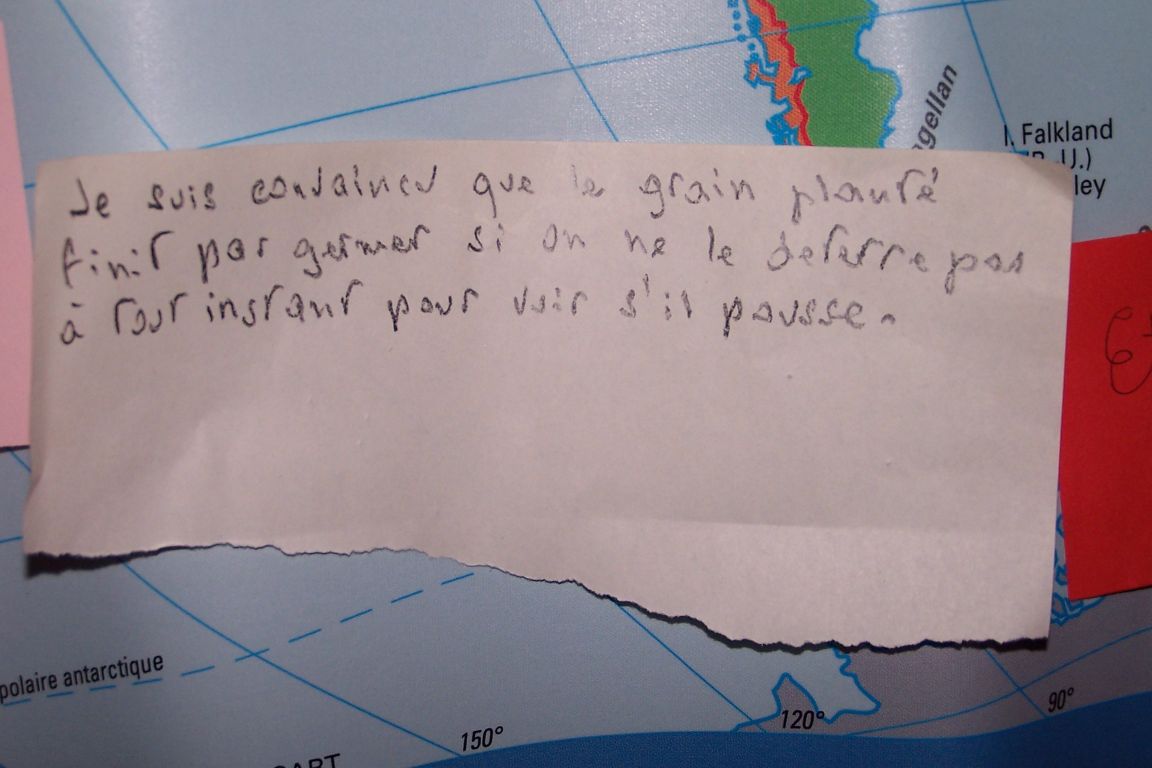 Je suis convaincu que le grain planté
finit par germer si on ne le deterre pas
à tout instant pour voir s'il pousse.
gellan
I. Falkland
(R. U.)
ley
polaire antarctique
150°
120°
90°
ART